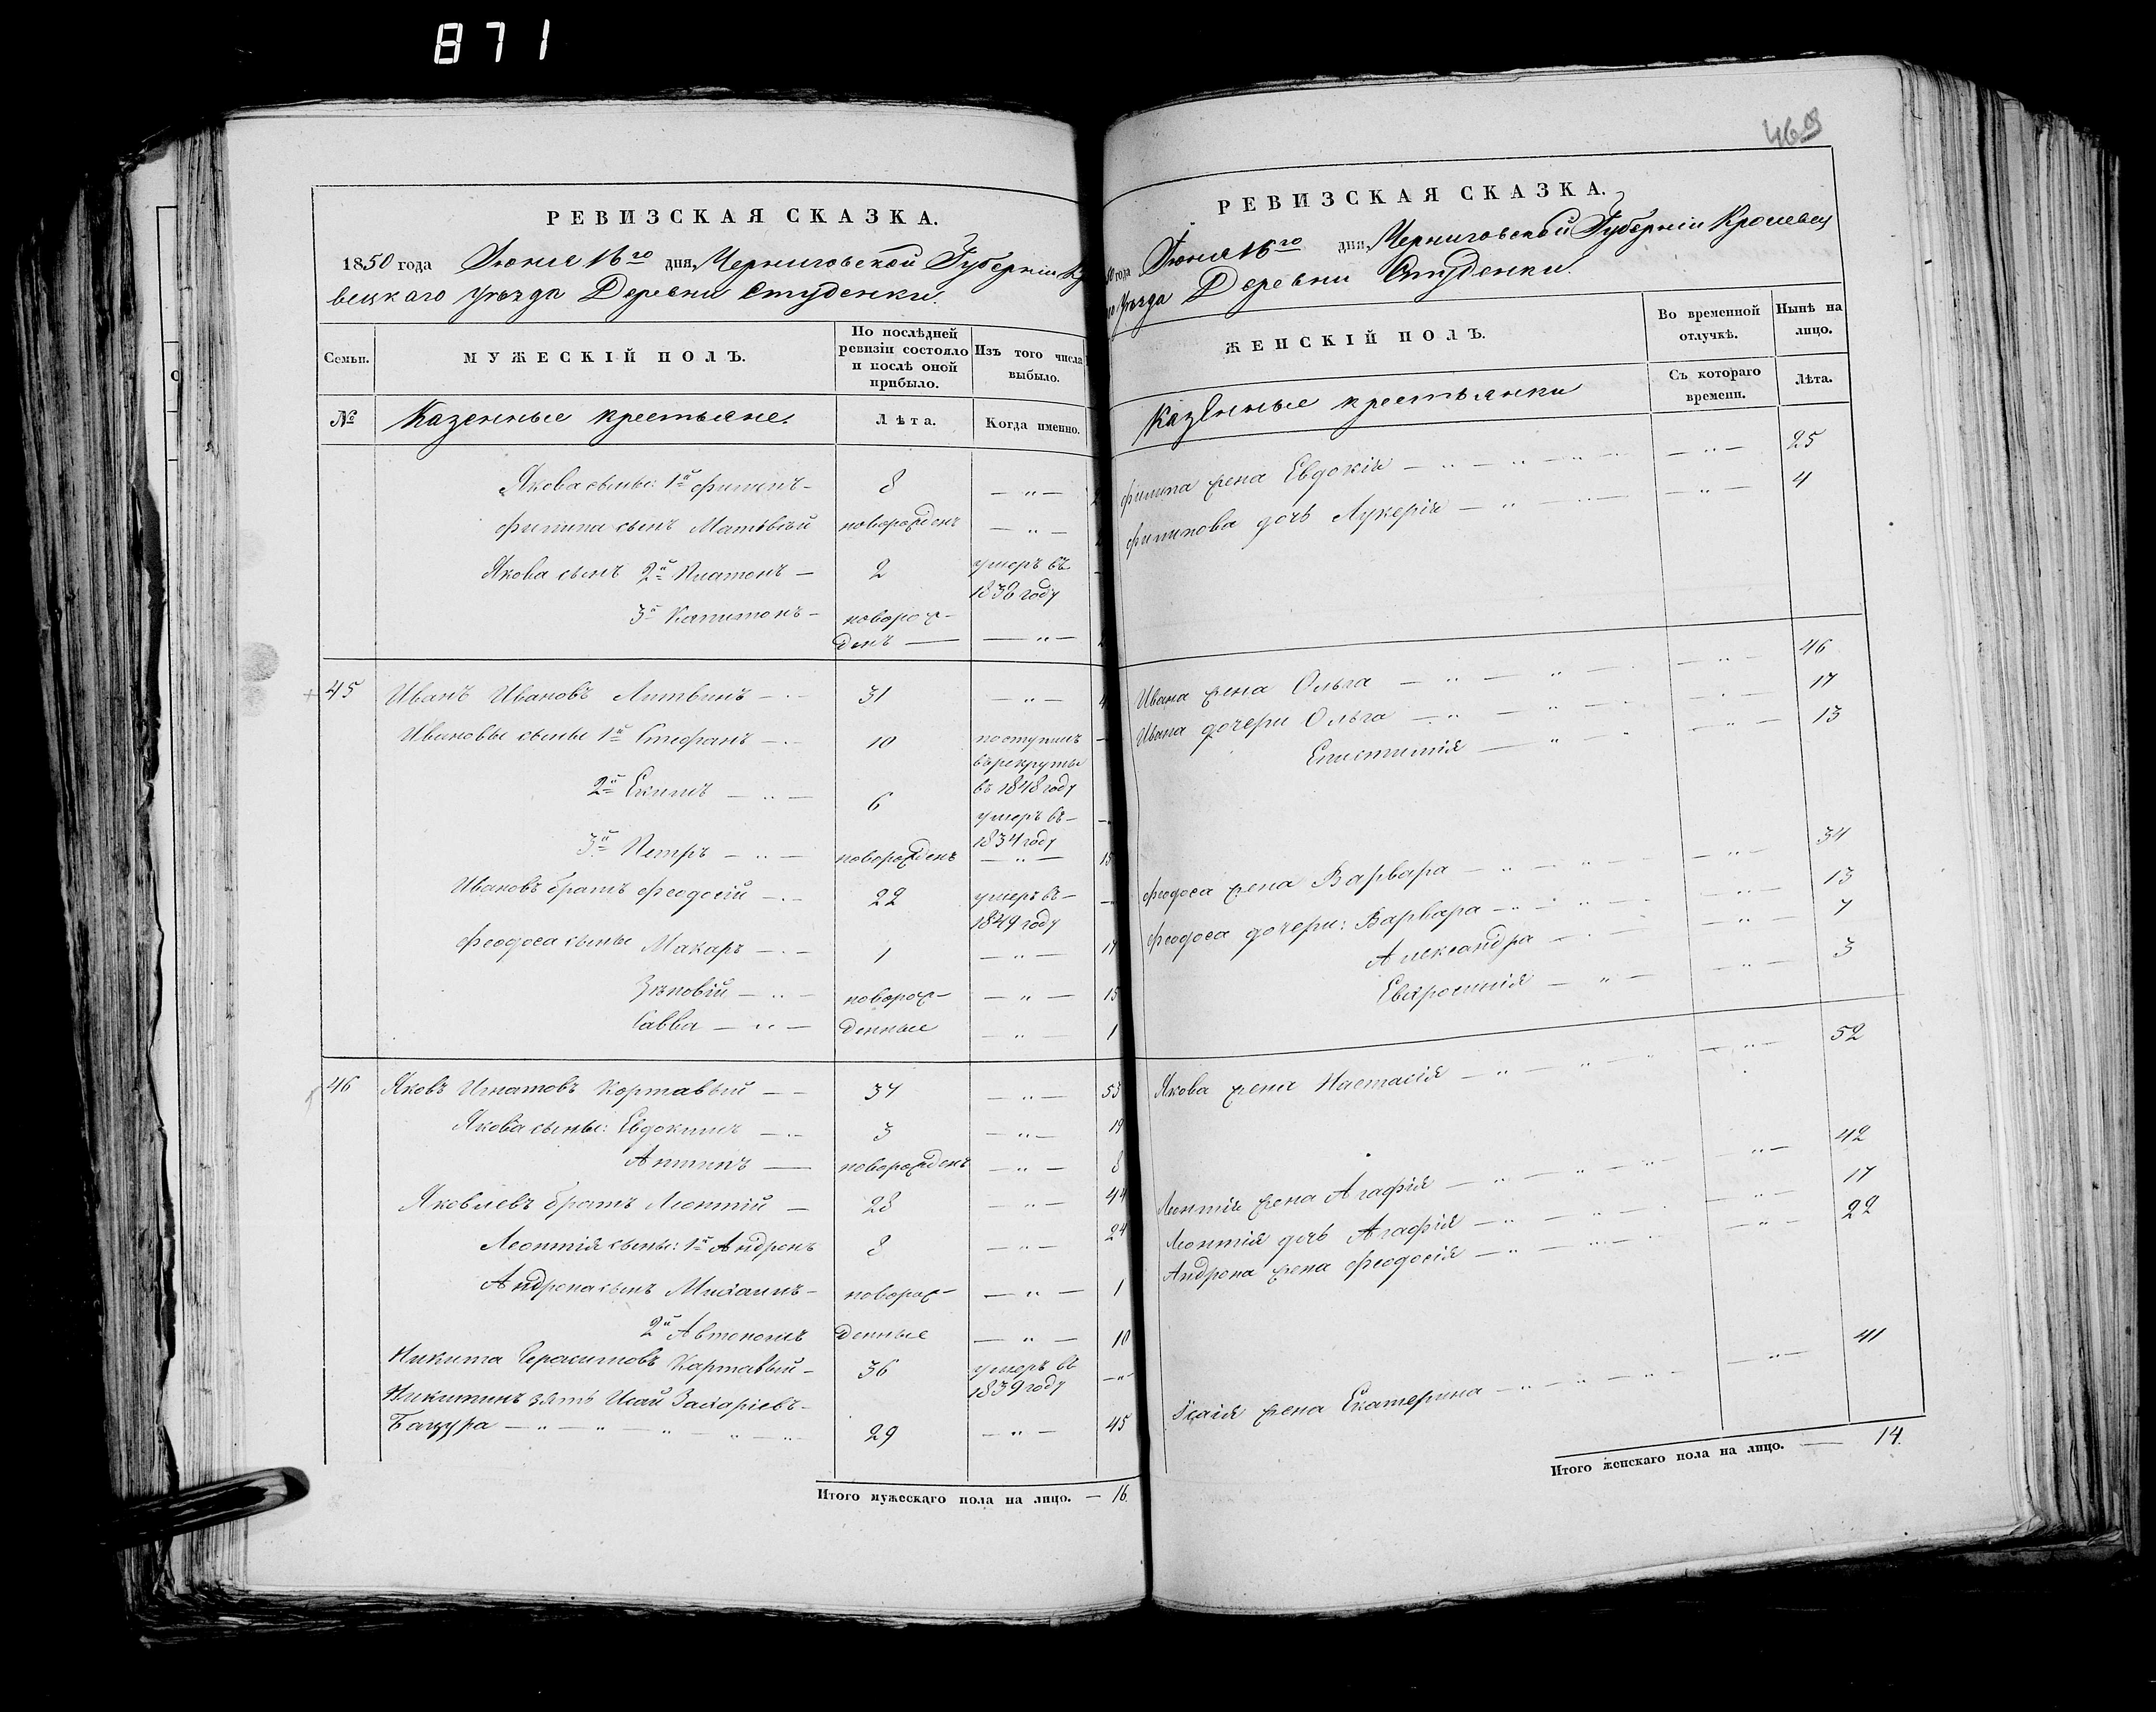 871
РЕВИЗСКАЯ СКАЗКА.
1850 года Июня 16го дня, Черниговской Губерніи Кр
вецкаго уѣзда Деревни Студенки.
Семьи. МУЖЕСКІЙ ПОЛЪ. По послѣдней ревизіи состояло и послѣ оной прибыло. Изъ того числа выбыло.
№ Казенные крестьяне. Лѣта. Когда именно.
Якова сыны: 1й Филипъ — 8 — „ —
Филипа сынъ Матвѣй новорожденъ — „ —
Якова сынъ 2й Платонъ — 2 умеръ въ
1836 году
3й Капитонъ — новорож-
денъ — — „ —
45 Иванъ Ивановъ Литвинъ — 31 — „ —
Ивановы сыны 1й Стефанъ — 10 поступилъ
въ рекруты
въ 1848 году
2й Екимъ — „ — 6 умеръ въ
1834 году
3й Петръ — „ — новорожденъ — „ — 15
Ивановъ братъ Феодосій — 22 умеръ въ
1849 году
Феодоса сыны Макаръ — 1 — „ — 17
Зѣновій — „ — новорож- — „ — 15
Савва — „ — денные — „ — 1
46 Яковъ Игнатовъ Кортавый — 37 — „ — 53
Якова сыны: Евдокимъ — 3 — „ — 19
Антипъ — новорожденъ — „ — 8
Яковлевъ братъ Леонтій — 28 — „ — 44
Леонтія сыны: 1й Андронъ 8 — „ — 24
Андрона сынъ Михаилъ — новорож- — „ — 1
2й Автономъ денные — „ — 10
Никита Герасимовъ Картавый — 36 умеръ въ
1839 году — „ —
Никитинъ зять Исай Захаріевъ —
Бацура — „ — „ — „ — 29 — „ — 45
Итого мужескаго пола на лицо. — 16.
469
РЕВИЗСКАЯ СКАЗКА.
года Июня 16го дня, Черниговской Губерніи Кролевец
уѣзда Деревни Студенки.
ЖЕНСКІЙ ПОЛЪ. Во временной отлучкѣ. Нынѣ на лицо.
Казенные крестьянки Съ котораго времени. Лѣта.
Филипа жена Евдокія — „ — „ — — „ — 25
Филипова дочь Лукерія — „ — „ — — „ — 4
Ивана жена Ольга — „ — „ — — „ — 46
Ивана дочери Ольга — „ — „ — — „ — 17
Епистимія — „ — „ — — „ — 13
Феодоса жена Варвара — „ — „ — — „ — 34
Феодоса дочери: Варвара — „ — „ — — „ — 13
Александра — „ — — „ — 7
Евфросинія — „ — — „ — 3
Якова жена Настасія — „ — „ — — „ — 52
Леонтія жена Агафія — „ — „ — — „ — 42
Леонтія дочь Агафія — „ — „ — — „ — 17
Андрона жена Феодосія — „ — „ — — „ — 22
Ісаія жена Екатерина — „ — „ — — „ — 41
Итого женскаго пола на лицо. — 14.